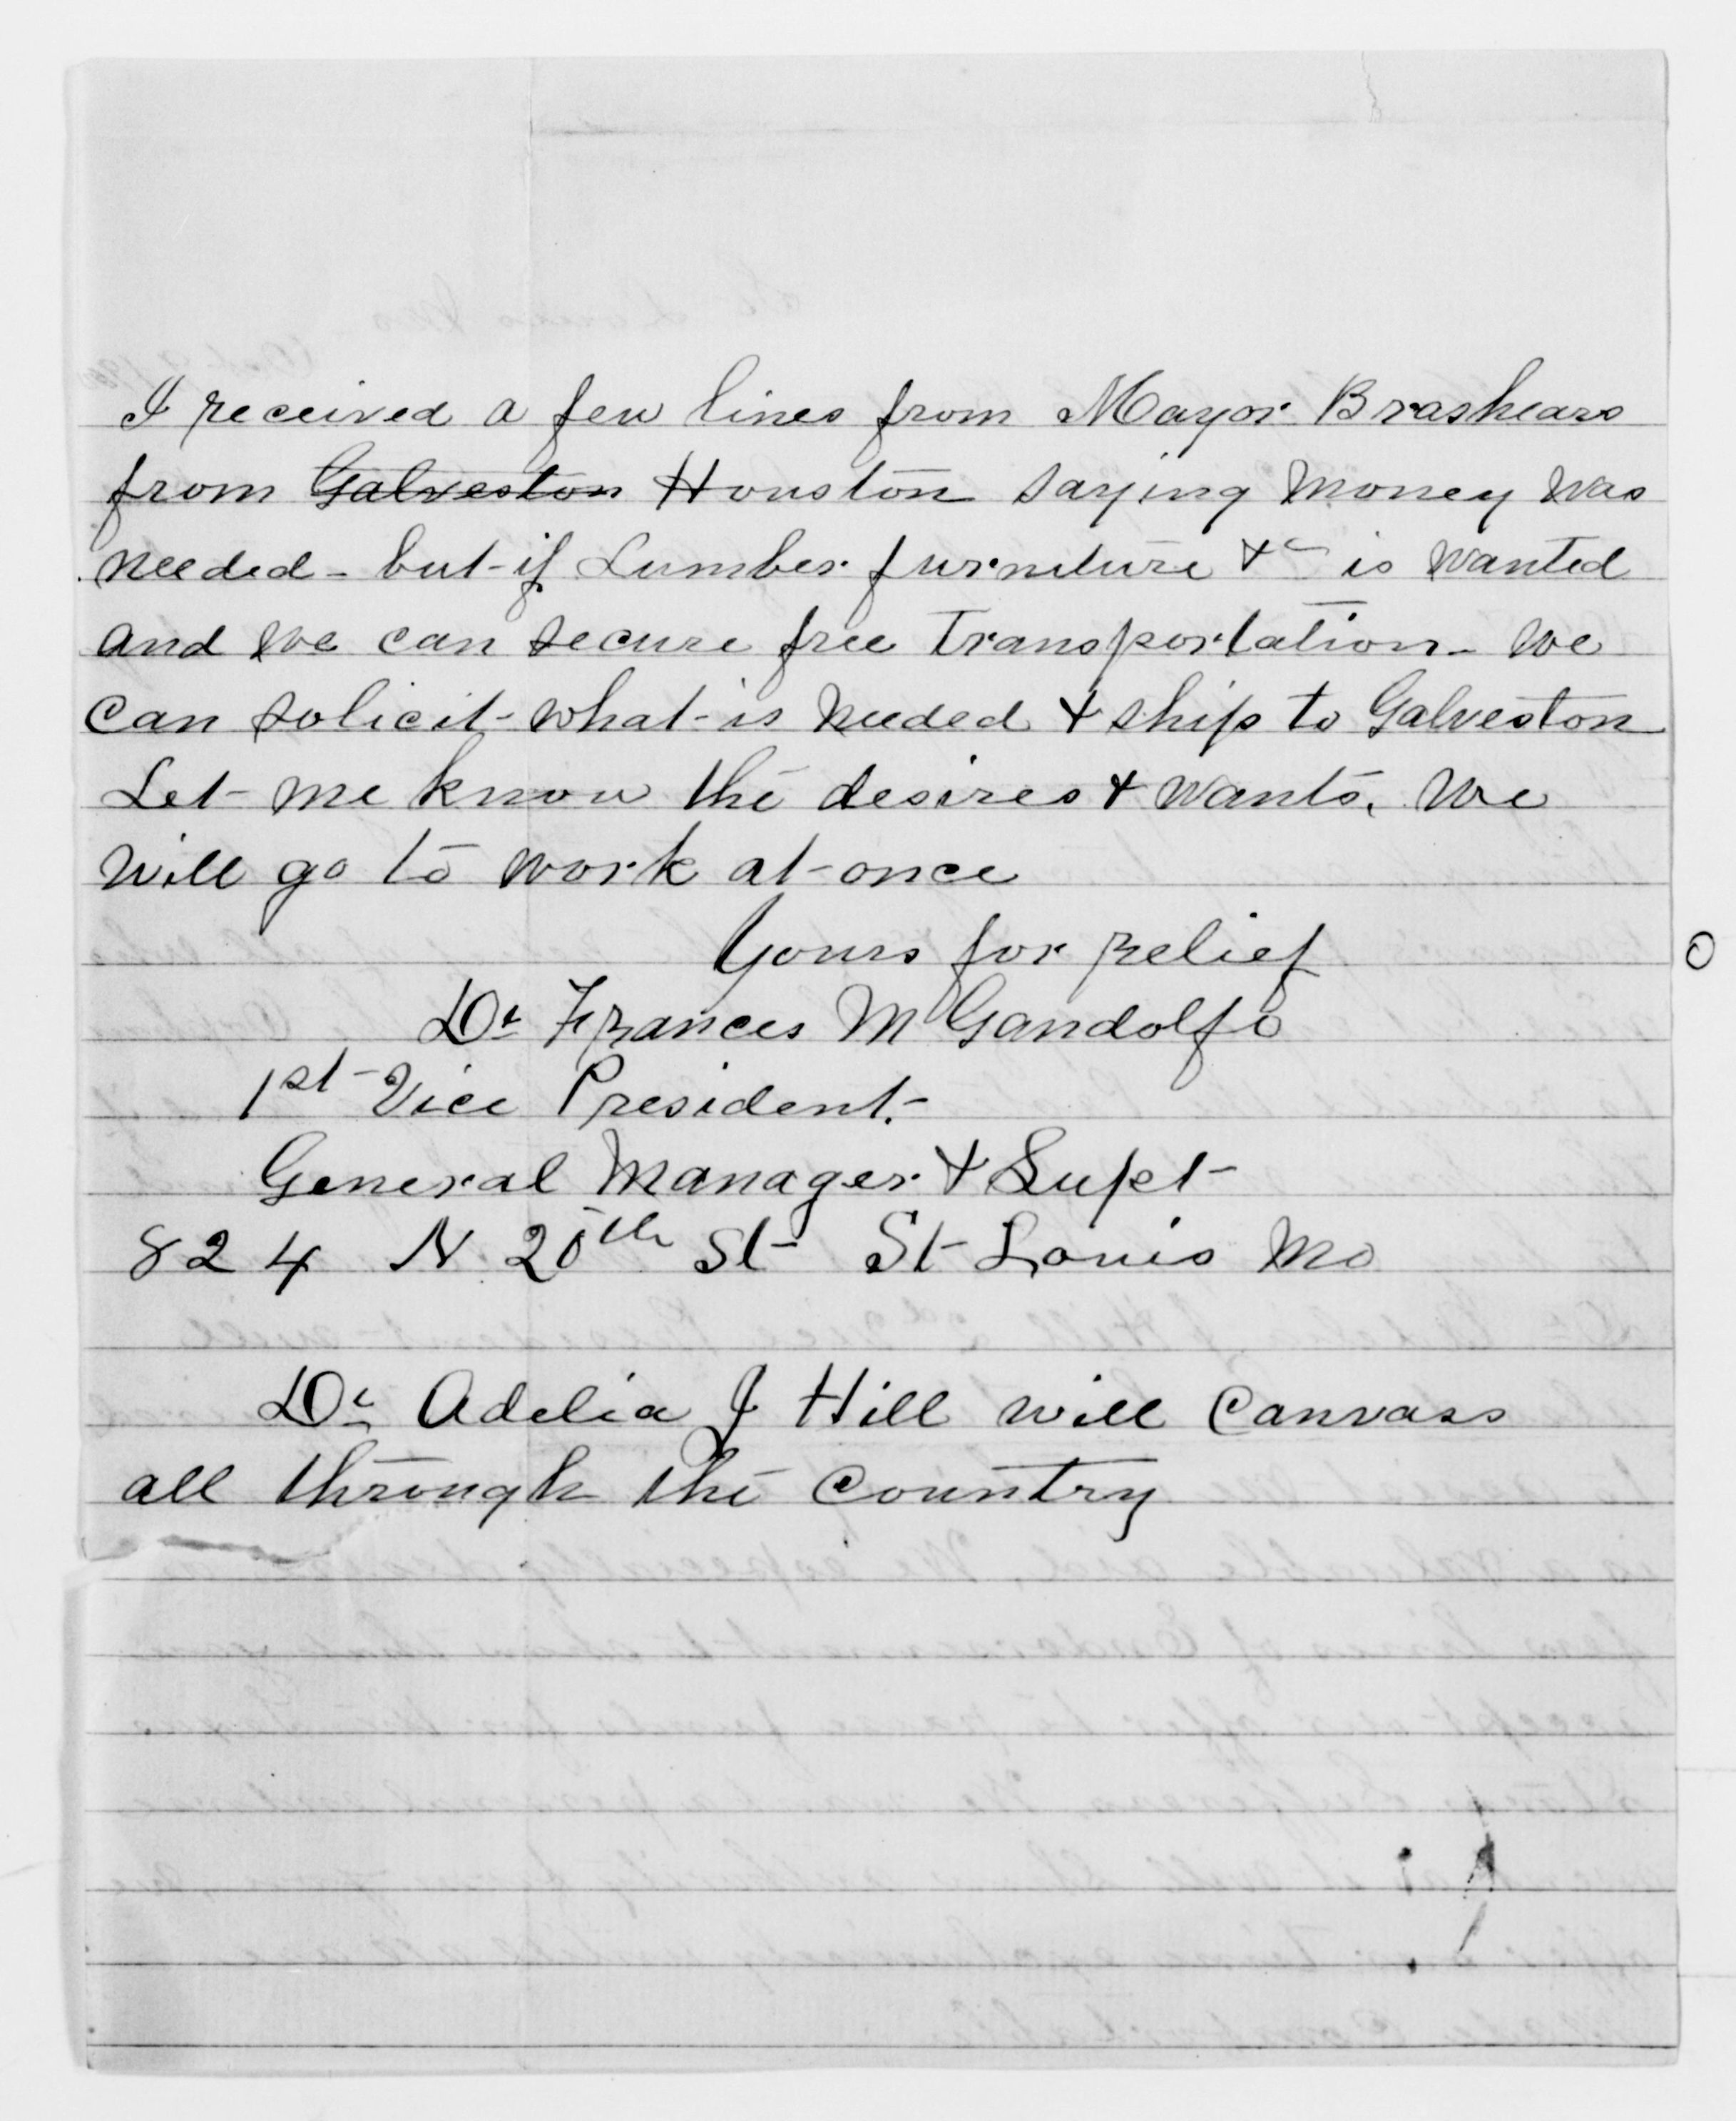 I received a few lines from Mayor Brashears
from Galveston Houston saying money was
needed - but if Lumber furniture &c is wanted
and we can secure free Transportation - we
can solicit what is needed & ship to Galveston
Let me know the desires & wants, We
will go to work at once
Yours for relief
Dr Frances M Gandolfo
1st Vice President.
General Manager & Supt
824 N 20th St St Louis Mo
Dr Adelia J Hill will canvass
all through the country